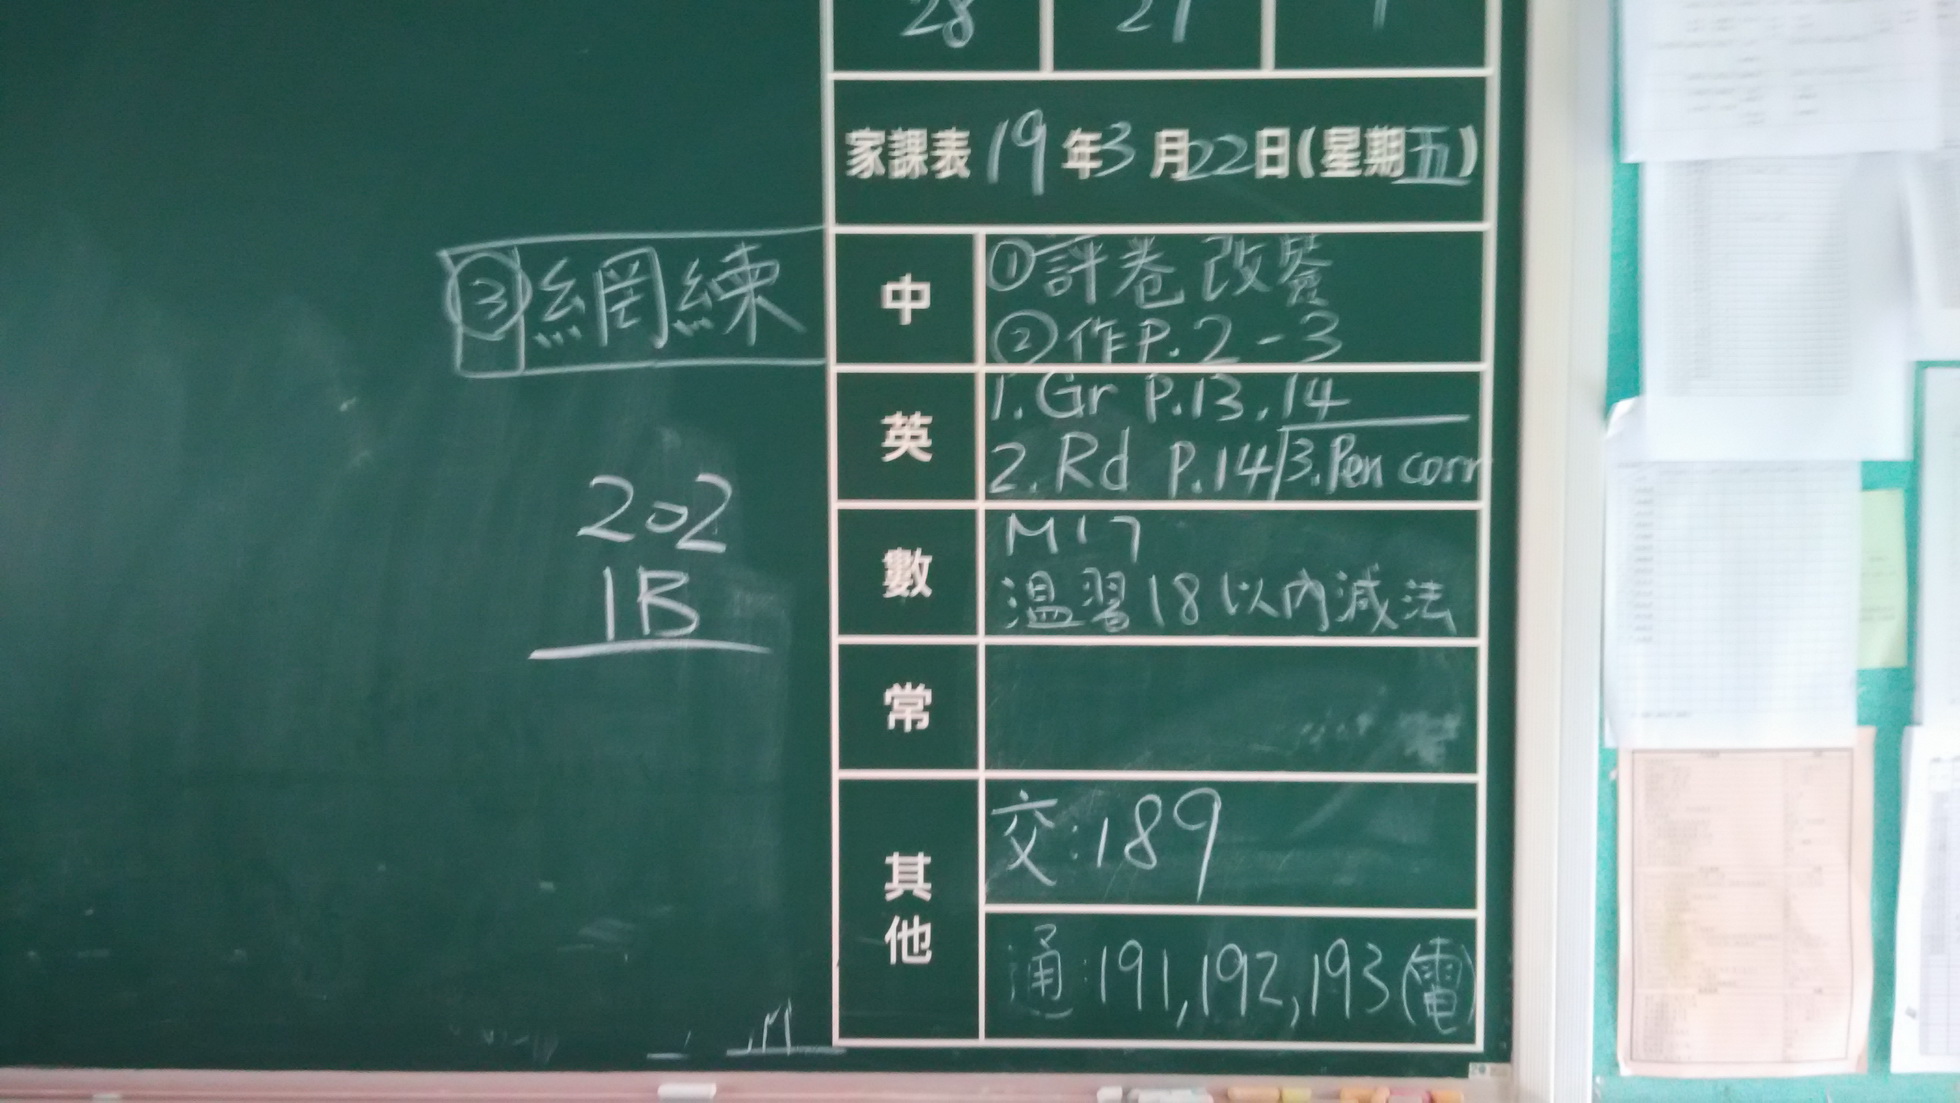 28 27 1
家課表 19年3月22日(星期五)
中
①評卷改簽
②作P.2-3
③網練
英
1. Gr P.13, 14
2. Rd P.14 3. Pen corr
數
M17
溫習18以內減法
202
1B
常
其他
交:189
通:191,192,193(電